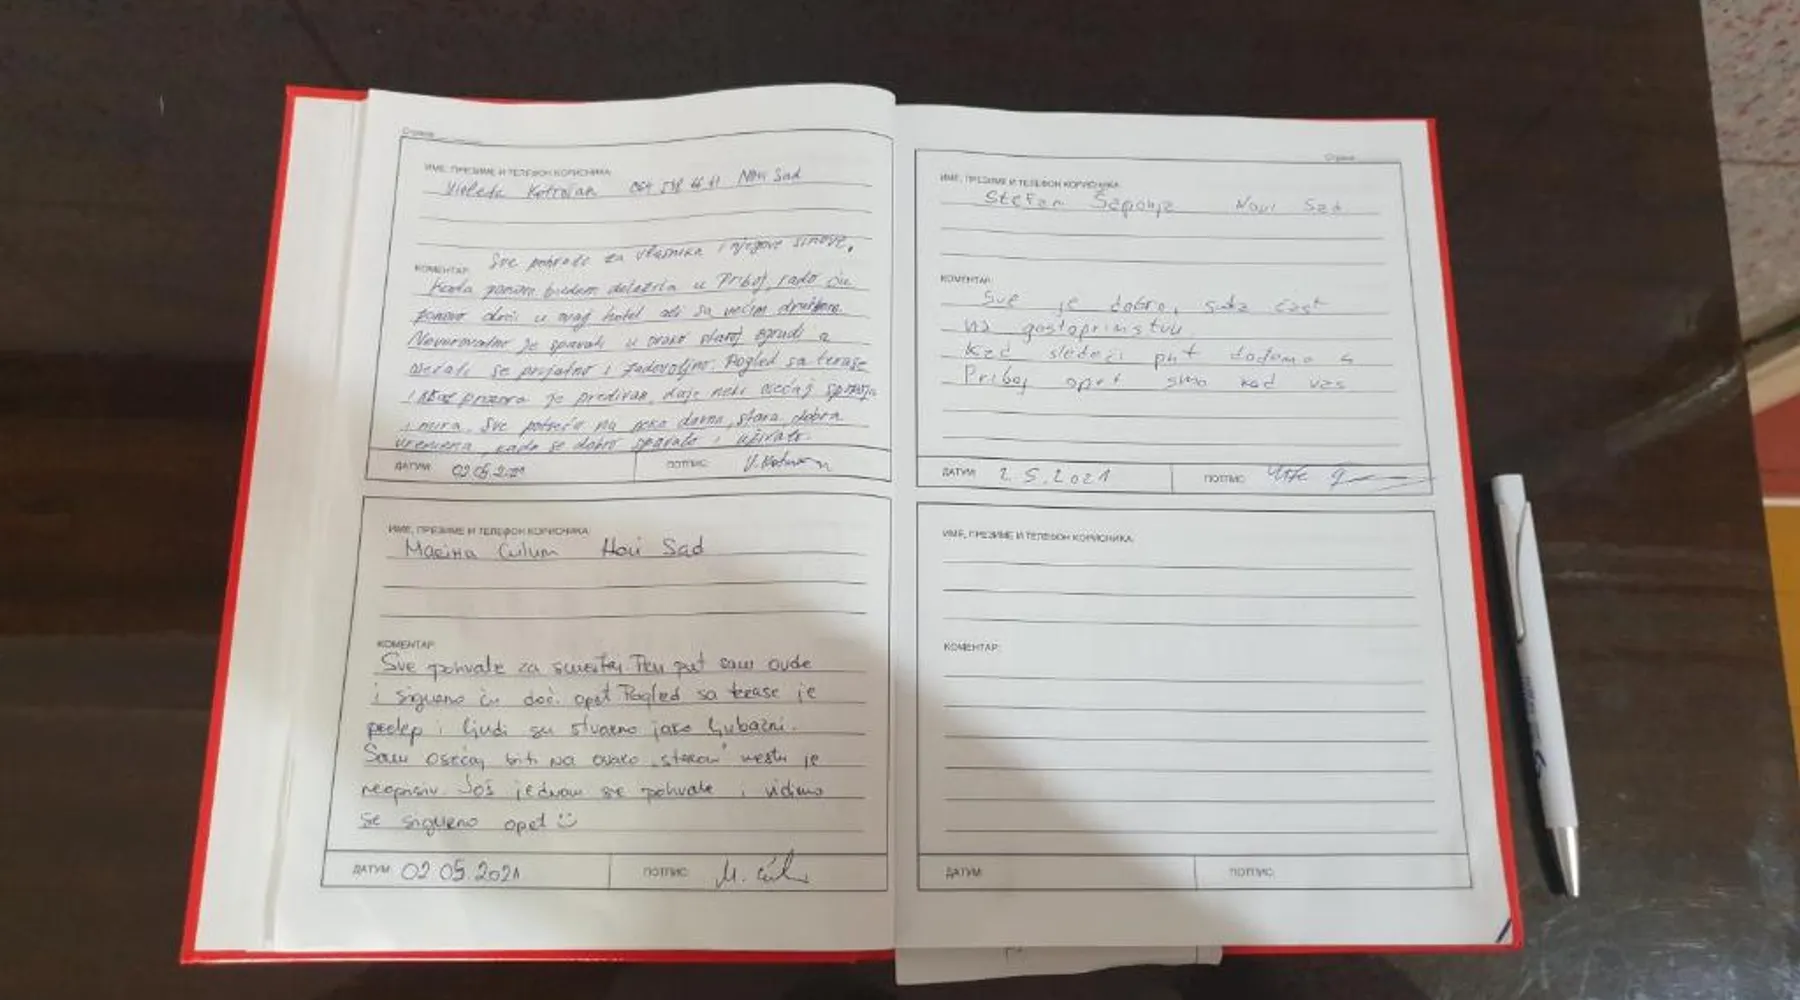 Страна
ИМЕ, ПРЕЗИМЕ И ТЕЛЕФОН КОРИСНИКА:
Violeta Novi Sad
Sve pohvale za vlasnika i njegove sinove.
КОМЕНТАР:
Kada ponovo budem dolazila u Priboj, rado ću
ponovo doći u ovaj hotel ali sa većim društvom.
Neverovatno je spavati u ovako staroj zgradi a
osećati se prijatno i zadovoljno. Pogled sa terase
i prozora je predivan, daje neki osećaj spokoja
i mira. Sve potseća na neka davna, stara, dobra
vremena, kada se dobro spavalo i uživalo.
ДАТУМ: 02.05.2021 ПОТПИС:
ИМЕ, ПРЕЗИМЕ И ТЕЛЕФОН КОРИСНИКА:
Ćulum Novi Sad
КОМЕНТАР:
Sve pohvale za smeštaj. Prvi put sam ovde
i sigurno ću doći opet. Pogled sa terase je
prelep i ljudi su stvarno jako ljubazni.
Sam osećaj biti na ovako "starom" mestu je
neopisiv. Još jednom sve pohvale i vidimo
se sigurno opet
ДАТУМ: 02.05.2021 ПОТПИС:
Страна
ИМЕ, ПРЕЗИМЕ И ТЕЛЕФОН КОРИСНИКА:
Stefan Šaponja Novi Sad
КОМЕНТАР:
Sve je dobro, svaka čast
na gostoprimstvu.
Kad sledeći put dođemo u
Priboj opet smo kod vas
ДАТУМ: 2.5.2021 ПОТПИС:
ИМЕ, ПРЕЗИМЕ И ТЕЛЕФОН КОРИСНИКА:
КОМЕНТАР:
ДАТУМ: ПОТПИС: